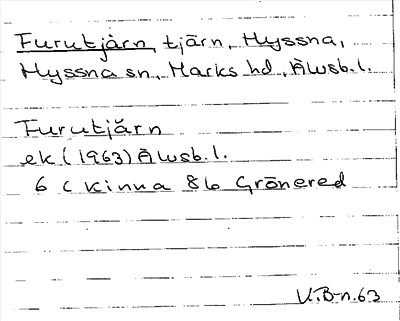 Furutjärn, tjärn, Hyssna,
Hyssna sn, Marks hd, Älvsb.l.
Furutjärn
ek.(1963) Älvsb.l.
6 C Kinna 8b Grönered
V.B-n.63